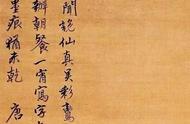 聞說仙真吳彩鸞
辦朝餐一宵寫字
墨痕猶未乾 唐